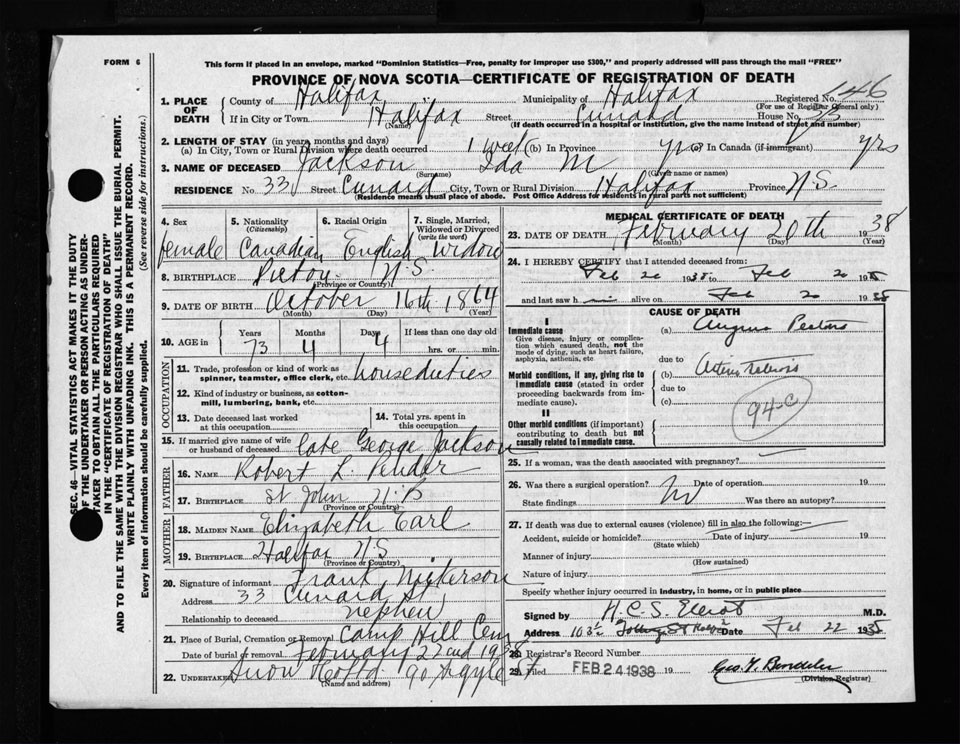 FORM 6
This form if placed in an envelope, marked "Dominion Statistics—Free, penalty for improper use $300," and properly addressed will pass through the mail "FREE"
PROVINCE OF NOVA SCOTIA—CERTIFICATE OF REGISTRATION OF DEATH
146
1. PLACE OF DEATH
County of Halifax Municipality of Halifax Registered No.
(For use of Registrar General only)
If in City or Town Halifax Street Cunard House No. 33
(Name) (If death occurred in a hospital or institution, give the name instead of street and number)
2. LENGTH OF STAY (in years, months and days)
(a) In City, Town or Rural Division where death occurred 1 week (b) In Province yrs (c) In Canada (if immigrant) yrs
3. NAME OF DECEASED Jackson Ida M
(Surname) (Given name or names)
RESIDENCE No. 33 Street Cunard City, Town or Rural Division Halifax Province N.S.
(Residence means usual place of abode. Post Office Address for residents in rural parts not sufficient)
4. Sex
female
5. Nationality
(Citizenship)
Canadian
6. Racial Origin
English
7. Single, Married, Widowed or Divorced
(write the word)
Widow
8. BIRTHPLACE Pictou N.S.
(Province or Country)
9. DATE OF BIRTH October 16th 1864
(Month) (Day) (Year)
10. AGE in
Years Months Days If less than one day old
73 4 4 hrs. or min.
OCCUPATION
11. Trade, profession or kind of work as spinner, teamster, office clerk, etc. house duties
12. Kind of industry or business, as cotton-mill, lumbering, bank, etc.
13. Date deceased last worked at this occupation
14. Total yrs. spent in this occupation
15. If married give name of wife or husband of deceased late George Jackson
FATHER
16. NAME Robert L. Pender
17. BIRTHPLACE St John N.B
(Province or Country)
MOTHER
18. MAIDEN NAME Elizabeth Earl
19. BIRTHPLACE Halifax N.S.
(Province or Country)
20. Signature of informant Frank
Address 33 Cunard St
Relationship to deceased nephew
21. Place of Burial, Cremation or Removal Camp Hill Cem
Date of burial or removal February 22nd 1938
22. Undertaker Snow Co Ltd 90 Argyle St
(Name and address)
MEDICAL CERTIFICATE OF DEATH
23. DATE OF DEATH February 20th 1938
(Month) (Day) (Year)
24. I HEREBY CERTIFY that I attended deceased from:
Feb 20 1938 to Feb 20 1938
and last saw h alive on Feb 20 1938
CAUSE OF DEATH
I
Immediate cause
Give disease, injury or complication which caused death, not the mode of dying, such as heart failure, asphyxia, asthenia, etc
(a) Angina Pectoris
due to
Morbid conditions, if any, giving rise to immediate cause (stated in order proceeding backwards from immediate cause).
(b)
due to
(c)
94-C
II
Other morbid conditions (if important) contributing to death but not causally related to immediate cause.
25. If a woman, was the death associated with pregnancy?
26. Was there a surgical operation? No Date of operation 19
State findings Was there an autopsy?
27. If death was due to external causes (violence) fill in also the following:—
Accident, suicide or homicide? Date of injury 19
(State which)
Manner of injury
(How sustained)
Nature of injury
Specify whether injury occurred in industry, in home, or in public place
Signed by H.C.S. Elliot M.D.
Address Date Feb 22 1938
28. Registrar's Record Number
29. Filed FEB 24 1938 19
(Division Registrar)
SEC. 46—VITAL STATISTICS ACT MAKES IT THE DUTY
OF THE UNDERTAKER OR PERSON ACTING AS UNDERTAKER
TO OBTAIN ALL THE PARTICULARS REQUIRED
IN THE "CERTIFICATE OF REGISTRATION OF DEATH"
AND TO FILE THE SAME WITH THE DIVISION REGISTRAR WHO SHALL ISSUE THE BURIAL PERMIT.
WRITE PLAINLY WITH UNFADING INK. THIS IS A PERMANENT RECORD.
Every item of information should be carefully supplied. (See reverse side for instructions.)